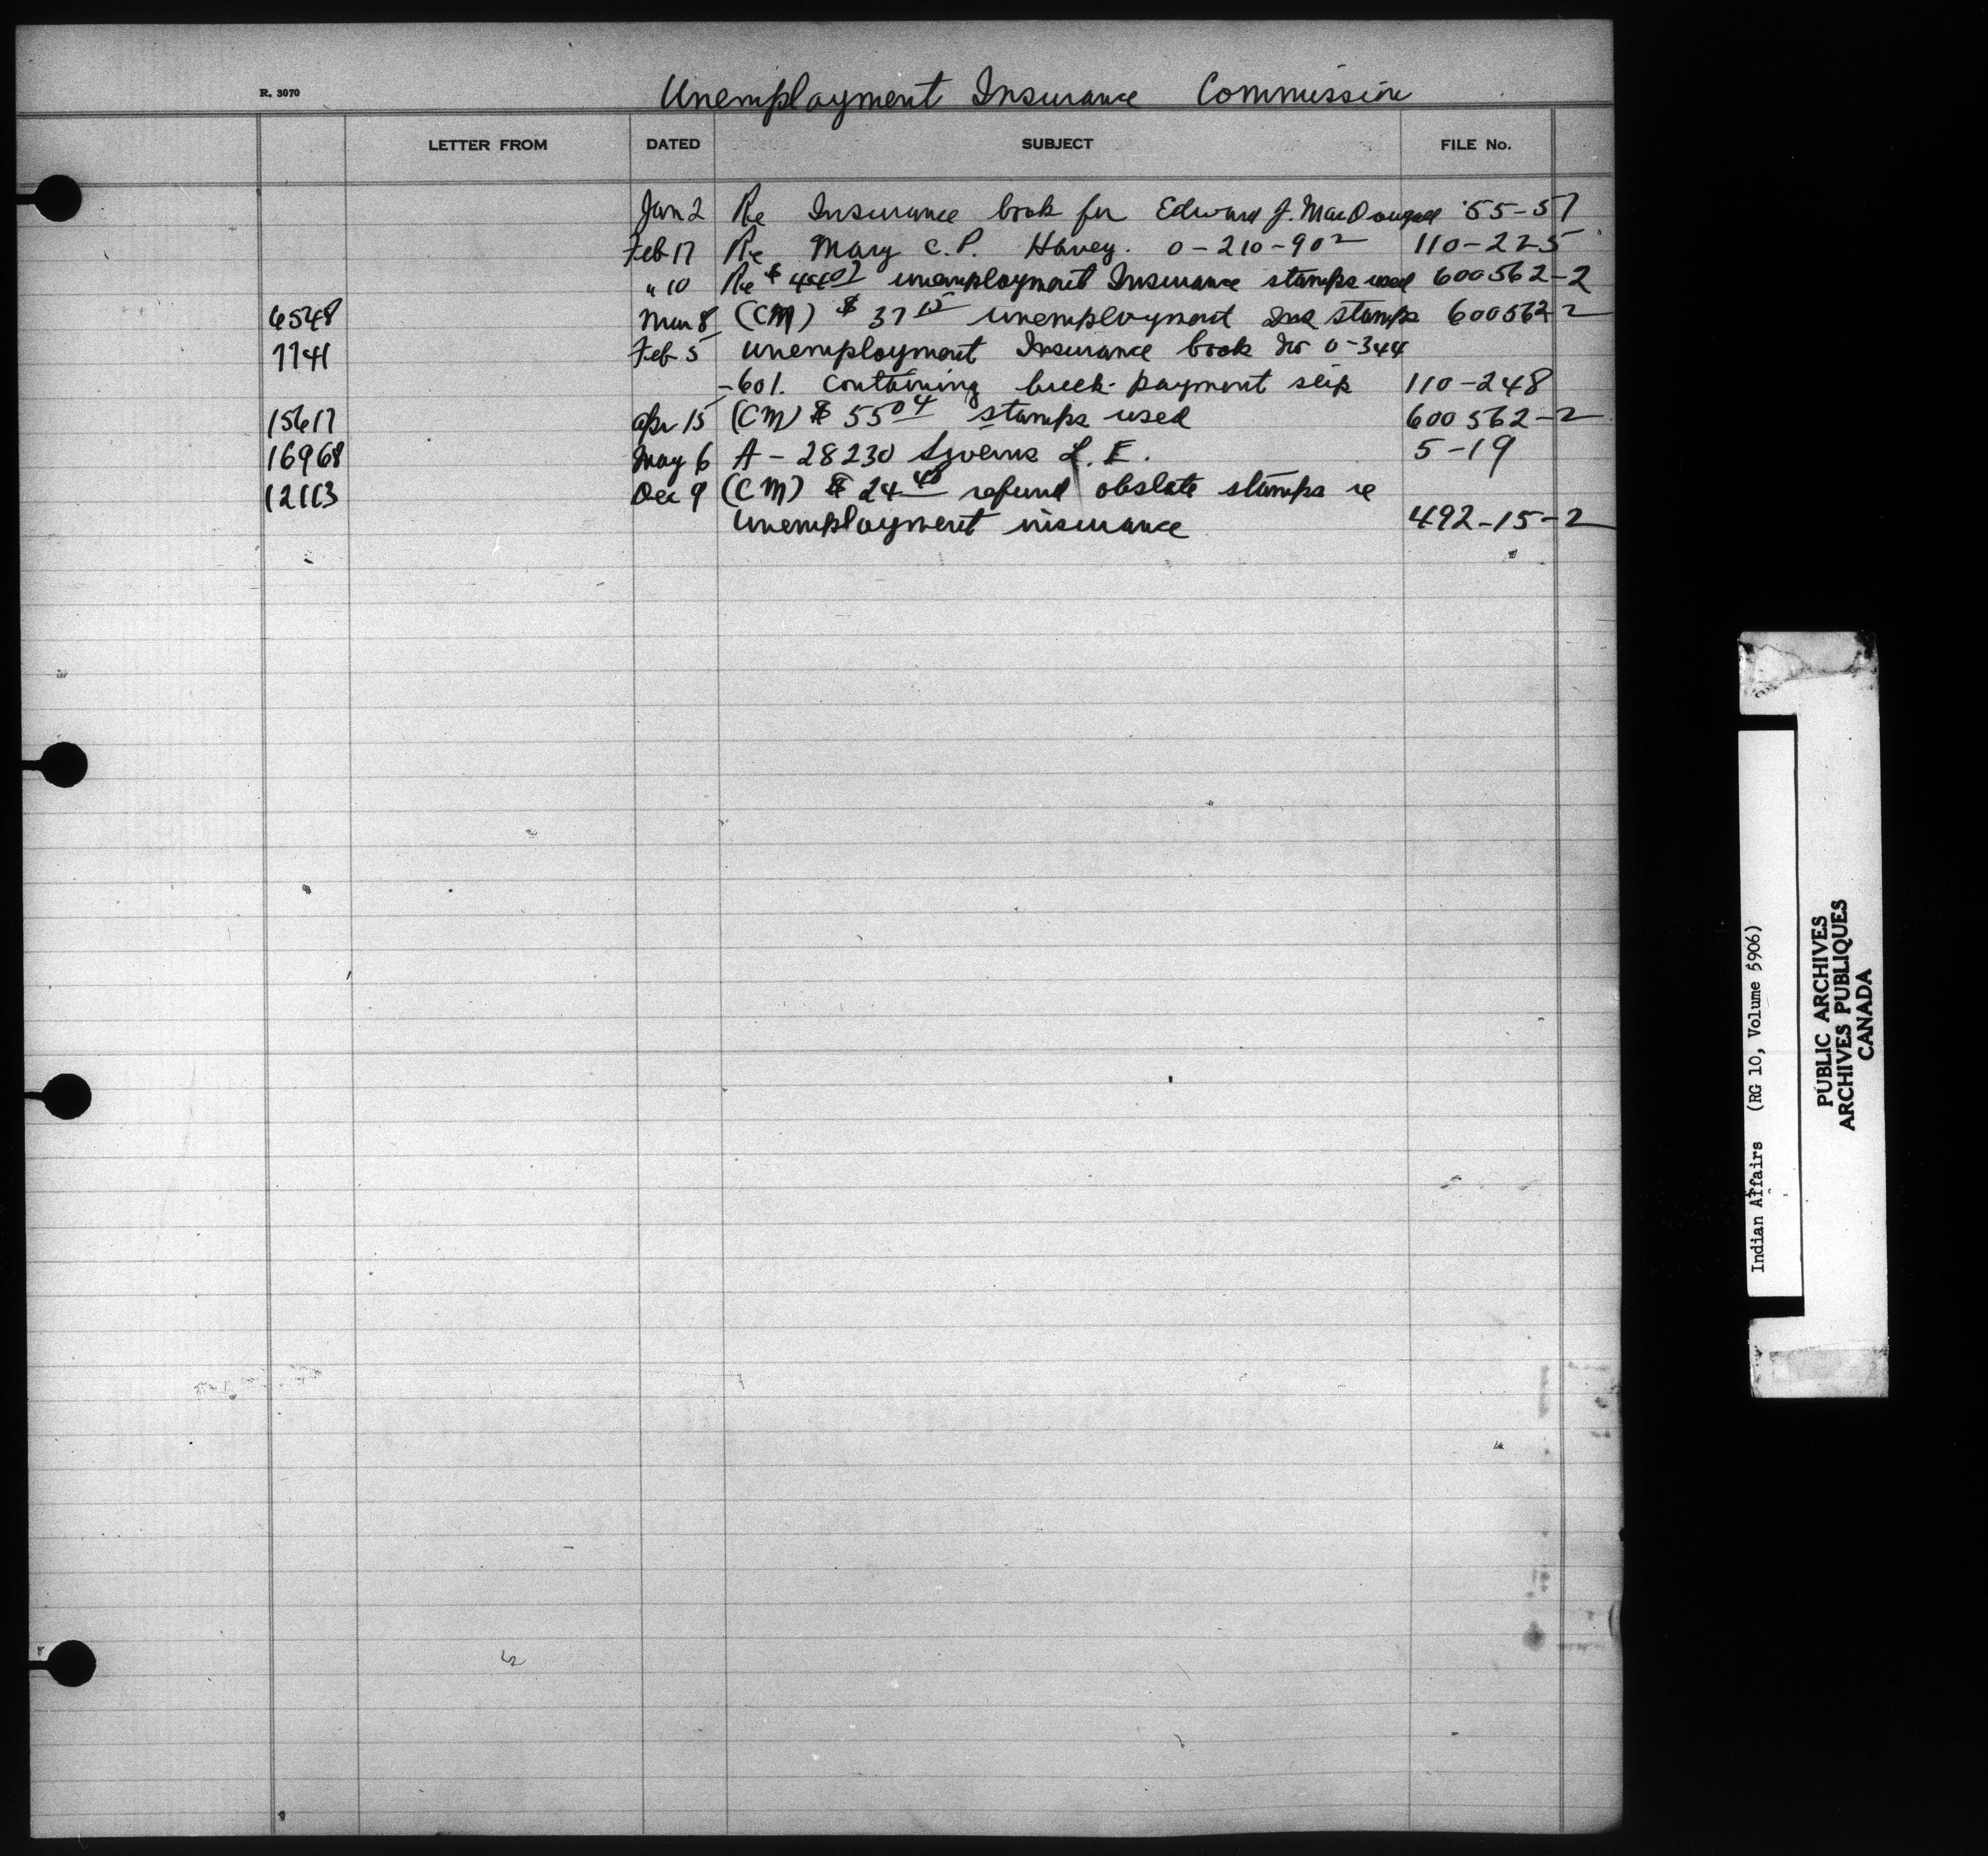 R. 3070
Unemployment Insurance Commission
LETTER FROM DATED SUBJECT FILE No.
Jan 2 Re Insurance book for Edward J. MacDougall 55-57
Feb 17 Re Mary C. P. Harvey. 0-210-902 110-225
" 10 Re $ unemployment Insurance stamps used 600562-2
6548 Mar 8 (CM) $ 37 15 unemployment Ins stamps 600562-2
7741 Feb 5 Unemployment Insurance book No 0-344
-601. containing payment slip 110-248
15617 Apr 15 (CM) $ 55 04 stamps used 600562-2
16968 May 6 A-28230 L. E. 5-19
12113 Dec 9 (CM) $ 24 40 refund obslate stamps re
Unemployment insurance 492-15-2
Indian Affairs (RG 10, Volume 5906)
PUBLIC ARCHIVES
ARCHIVES PUBLIQUES
CANADA